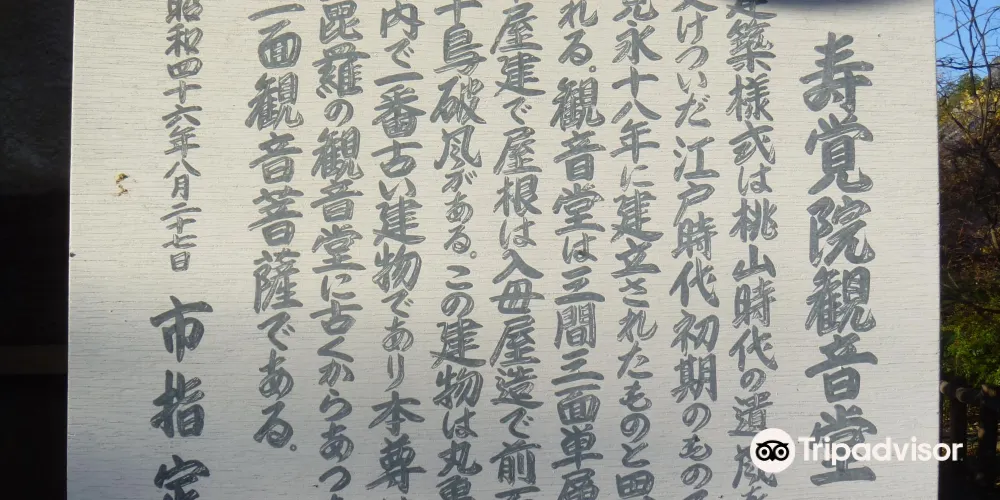 寿覚院観音堂
建築様式は桃山時代の遺風を
けついだ江戸時代初期のもので
永十八年に建立されたものと思
れる。観音堂は三間三面単層
屋建で屋根は入母屋造で前面
千鳥破風がある。この建物は丸亀
内で一番古い建物であり本尊は
毘羅の観音堂に古くからあった
一面観音菩薩である。
昭和四十六年八月二十七日
市指定
Tripadvisor